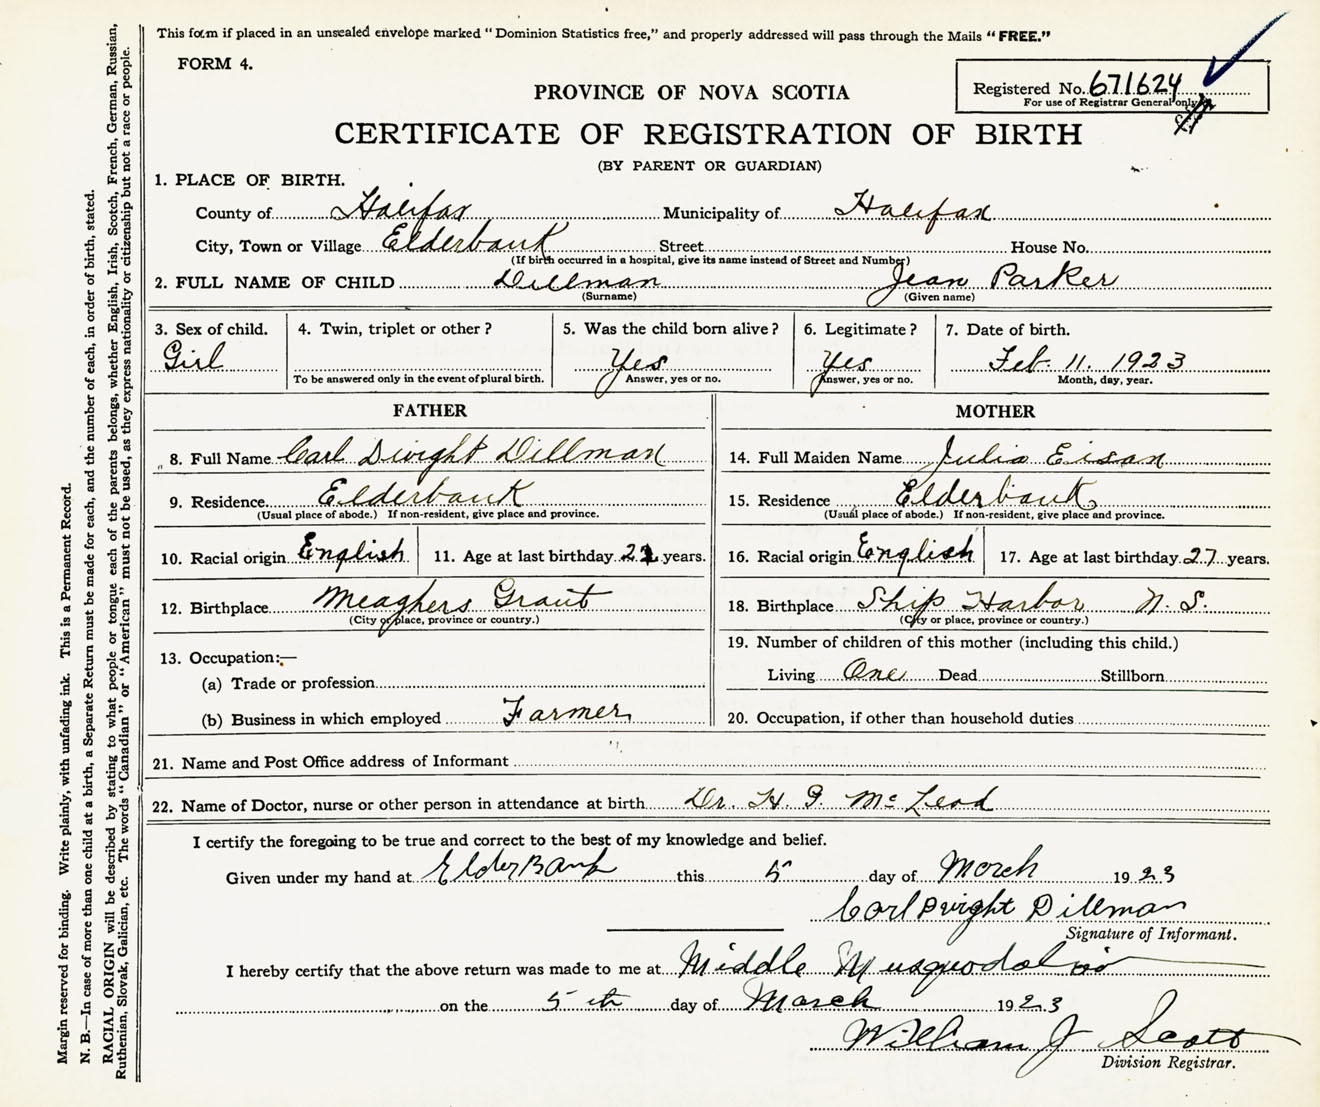 This form if placed in an unsealed envelope marked "Dominion Statistics free," and properly addressed will pass through the Mails "FREE."
FORM 4.
Registered No. 671624
For use of Registrar General only
PROVINCE OF NOVA SCOTIA
CERTIFICATE OF REGISTRATION OF BIRTH
(BY PARENT OR GUARDIAN)
1. PLACE OF BIRTH.
County of Halifax Municipality of Halifax
City, Town or Village Elderbank Street House No.
(If birth occurred in a hospital, give its name instead of Street and Number)
2. FULL NAME OF CHILD Dillman Jean Parker
(Surname) (Given name)
3. Sex of child. 4. Twin, triplet or other? 5. Was the child born alive? 6. Legitimate? 7. Date of birth.
Girl Yes Yes Feb. 11. 1923
To be answered only in the event of plural birth. Answer, yes or no. Answer, yes or no. Month, day, year.
FATHER MOTHER
8. Full Name Carl Dwight Dillman 14. Full Maiden Name Julia Eisan
9. Residence Elderbank 15. Residence Elderbank
(Usual place of abode.) If non-resident, give place and province. (Usual place of abode.) If non-resident, give place and province.
10. Racial origin English 11. Age at last birthday years. 16. Racial origin English 17. Age at last birthday 27 years.
12. Birthplace Meaghers Grant 18. Birthplace Ship Harbor N. S.
(City or place, province or country.) (City or place, province or country.)
13. Occupation:— 19. Number of children of this mother (including this child.)
(a) Trade or profession Living One Dead Stillborn
(b) Business in which employed Farmer 20. Occupation, if other than household duties
21. Name and Post Office address of Informant
22. Name of Doctor, nurse or other person in attendance at birth Dr. H. G. McLeod
I certify the foregoing to be true and correct to the best of my knowledge and belief.
Given under my hand at ElderBank this 5 day of March 1923
Carl Dwight Dillman
Signature of Informant.
I hereby certify that the above return was made to me at Middle Musquodoboit
on the 5th day of March 1923
William J Scott
Division Registrar.
Margin reserved for binding. Write plainly, with unfading ink. This is a Permanent Record.
N. B.—In case of more than one child at a birth, a Separate Return must be made for each, and the number of each, in order of birth, stated.
RACIAL ORIGIN will be described by stating to what people or tongue each of the parents belongs, whether English, Irish, Scotch, French, German, Russian,
Ruthenian, Slovak, Galician, etc. The words "Canadian" or "American" must not be used, as they express nationality or citizenship but not a race or people.